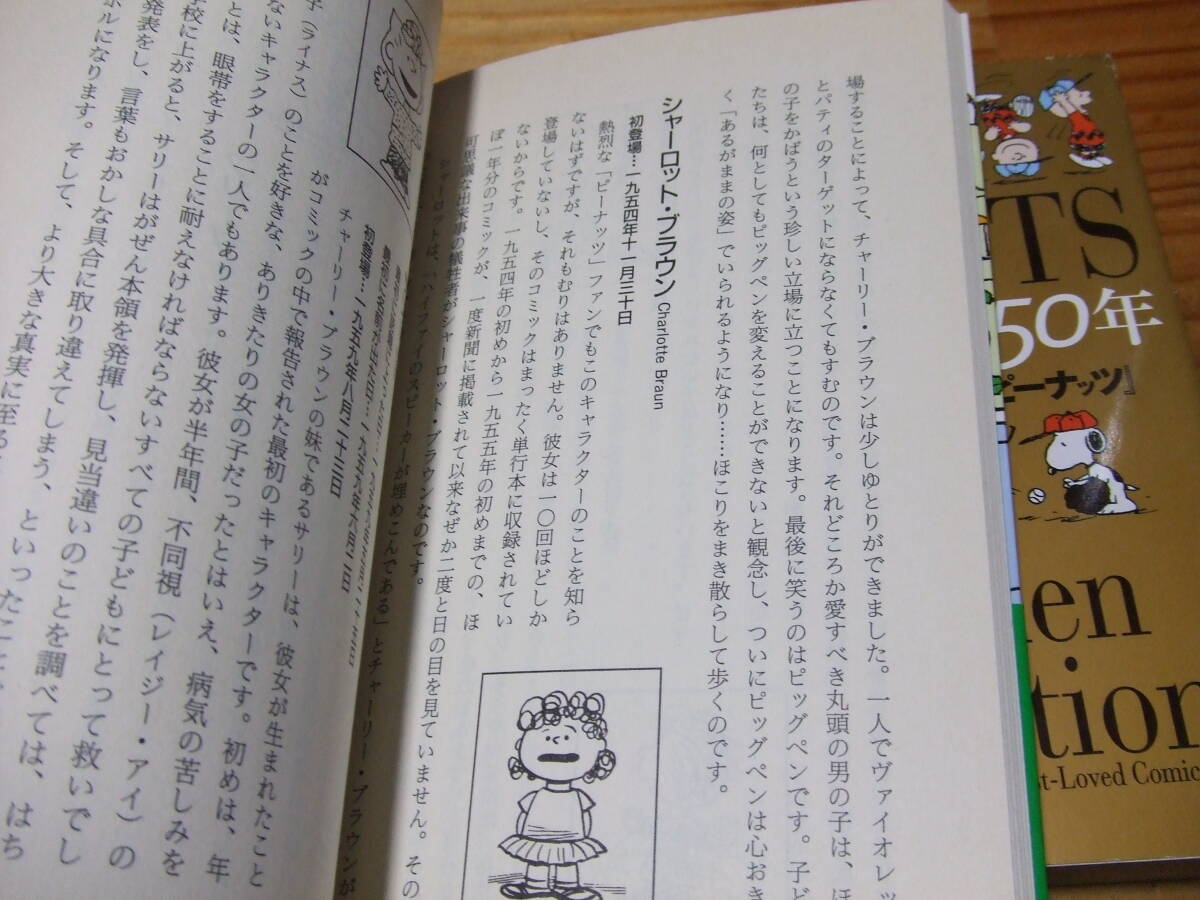 場することによって、チャーリー・ブラウンは少しゆとりができました。一人でヴァイオレッ
とパティのターゲットにならなくてもすむのです。それどころか愛すべき丸頭の男の子は、ほ
の子をかばうという珍しい立場に立つことになります。最後に笑うのはピッグペンです。子ど
もたちは、何としてもピッグペンを変えることができないと観念し、ついにピッグペンは心おき
く「あるがままの姿」でいられるようになり……ほこりをまき散らして歩くのです。
シャーロット・ブラウン Charlotte Braun
初登場…一九五四年十一月三十日
熱烈な「ピーナッツ」ファンでもこのキャラクターのことを知ら
ないはずですが、それもむりはありません。彼女は一〇回ほどしか
登場していないし、そのコミックはまったく単行本に収録されてい
ないからです。一九五四年の初めから一九五五年の初めまでの、ほ
ぼ一年分のコミックが、一度新聞に掲載されて以来なぜか二度と日の目を見ていません。その
可思議な出来事の犠牲者がシャーロット・ブラウンなのです。
シャーロットは、「ハイファイのスピーカーが埋めこんである」とチャーリー・ブラウンが
初登場…一九五九年八月二十三日
チャーリー・ブラウンの妹であるサリーは、彼女が生まれたこと
がコミックの中で報告された最初のキャラクターです。初めは、年
子（ライナス）のことを好きな、ありきたりの女の子だったとはいえ、病気の苦しみを
ないキャラクターの一人でもあります。彼女が半年間、不同視（レイジー・アイ）の
とは、眼帯をすることに耐えなければならないすべての子どもにとって救いでし
校に上がると、サリーはがぜん本領を発揮し、見当違いのことを調べては、はち
発表をし、言葉もおかしな具合に取り違えてしまう、といったこと
ホルになります。そして、より大きな真実に至る
TS
50年
ピーナッツ』
en
tion
st-Loved Comic